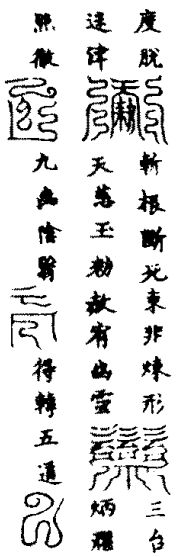 度脫斬根斷死東非煉形三台
律天慈玉勑赦宥幽靈炳
照徹九幽陰翳得轉五道